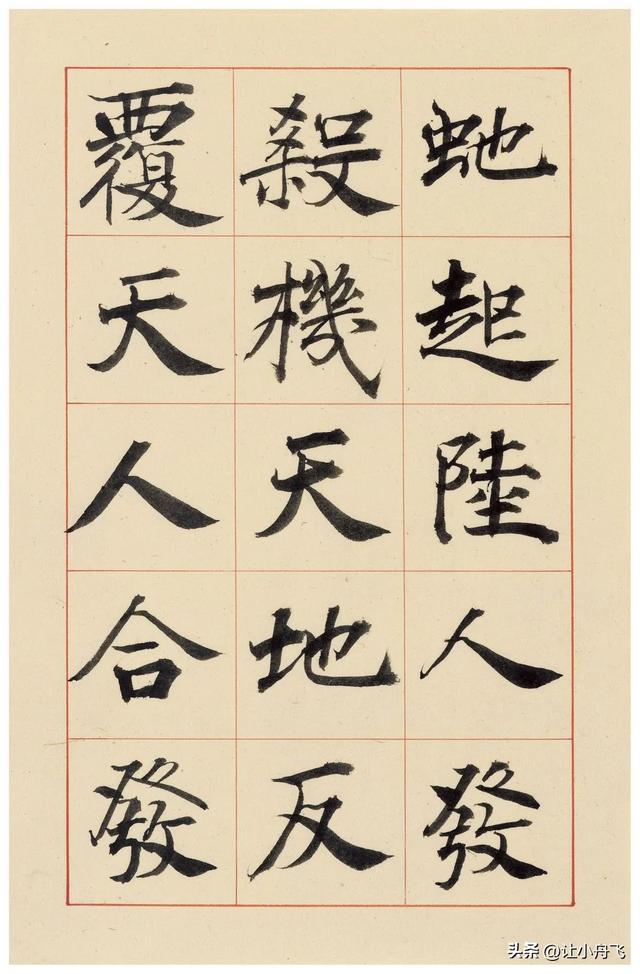 虵起陸人發
殺機天地反
覆天人合發
头条 @让小舟飞